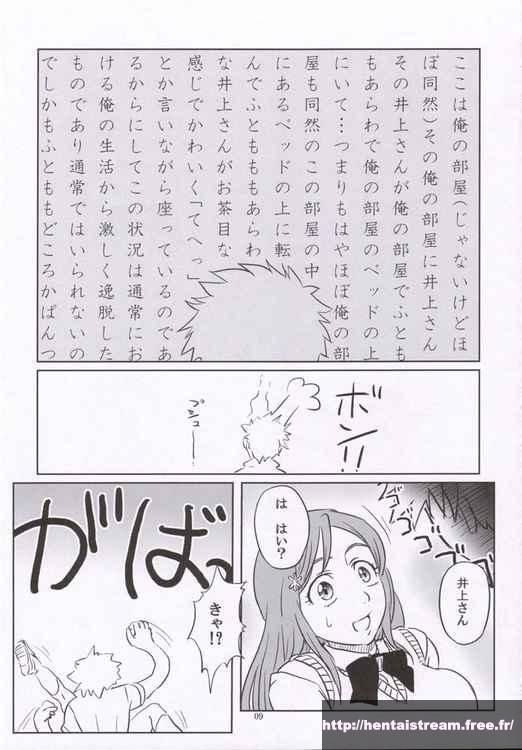 ここは俺の部屋(じゃないけどほ
ぼ同然)その俺の部屋に井上さん
その井上さんが俺の部屋でふとも
もあらわで俺の部屋のベッドの上
にいて…つまりもはやほぼ俺の部
屋も同然のこの部屋の中
にあるベッドの上に転
んでふとももももあらわ
な井上さんがお茶目な
感じでかわいく「てへっ」
とか言いながら座っているのであ
るからにしてこの状況は通常にお
ける俺の生活から激しく逸脱した
ものであり通常ではいられないの
でしかもふとももどころかぱんつ
ボン!!
プシュー
ゴゴゴゴゴ
井上さん
は はい?
がばっ
きゃ!?
09
http://hentaistream.free.fr/